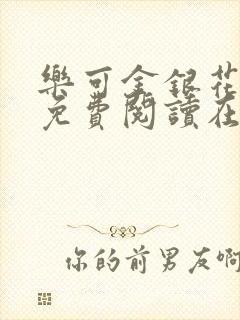 樂可金銀花
免費閱讀在
你的前男友啊